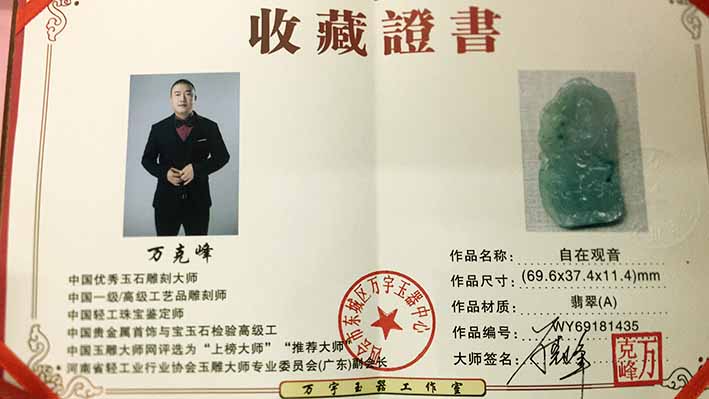 收藏證書
万克峰
中国优秀玉石雕刻大师
中国一级/高级工艺品雕刻师
中国轻工珠宝鉴定师
中国贵金属首饰与宝玉石检验高级工
中国玉雕大师网评选为“上榜大师”“推荐大师”
河南省轻工业行业协会玉雕大师专业委员会(广东)副会长
市东城区万宇玉器中心
作品名称: 自在观音
作品尺寸: (69.6x37.4x11.4)mm
作品材质: 翡翠(A)
作品编号: WY69181435
大师签名:
万克峰
万宇玉器工作室